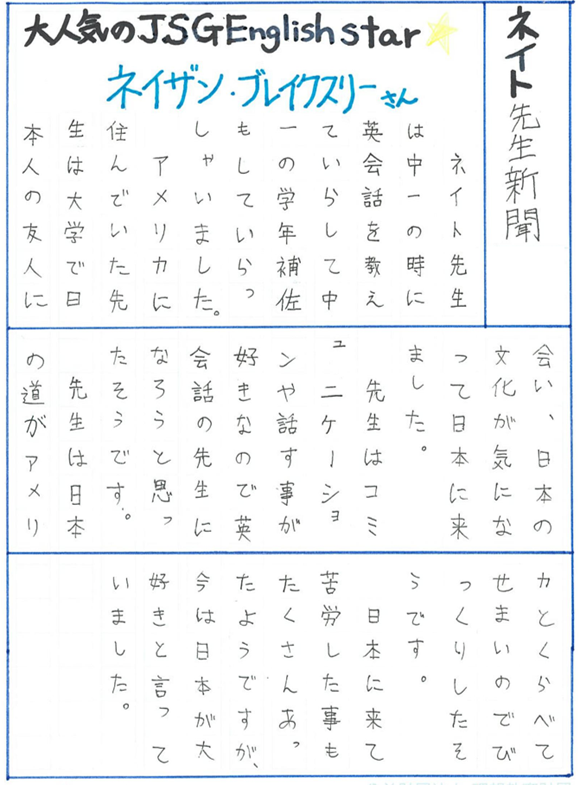 ネイト先生新聞
大人気のJSG English star
ネイザン・ブレイクスリーさん
ネイト先生
は中一の時に
英会話を教え
ていらして中
一の学年補佐
もしていらっ
しゃいました。
アメリカに
住んでいた先
生は大学で日
本人の友人に
会い、日本の
文化が気にな
って日本に来
ました。
先生はコミ
ュニケーショ
ンや話す事が
好きなので英
会話の先生に
なろうと思っ
たそうです。
先生は日本
の道がアメリ
カとくらべて
せまいのでび
っくりしたそ
うです。
日本に来て
苦労した事も
たくさんあっ
たようですが、
今は日本が大
好きと言って
いました。